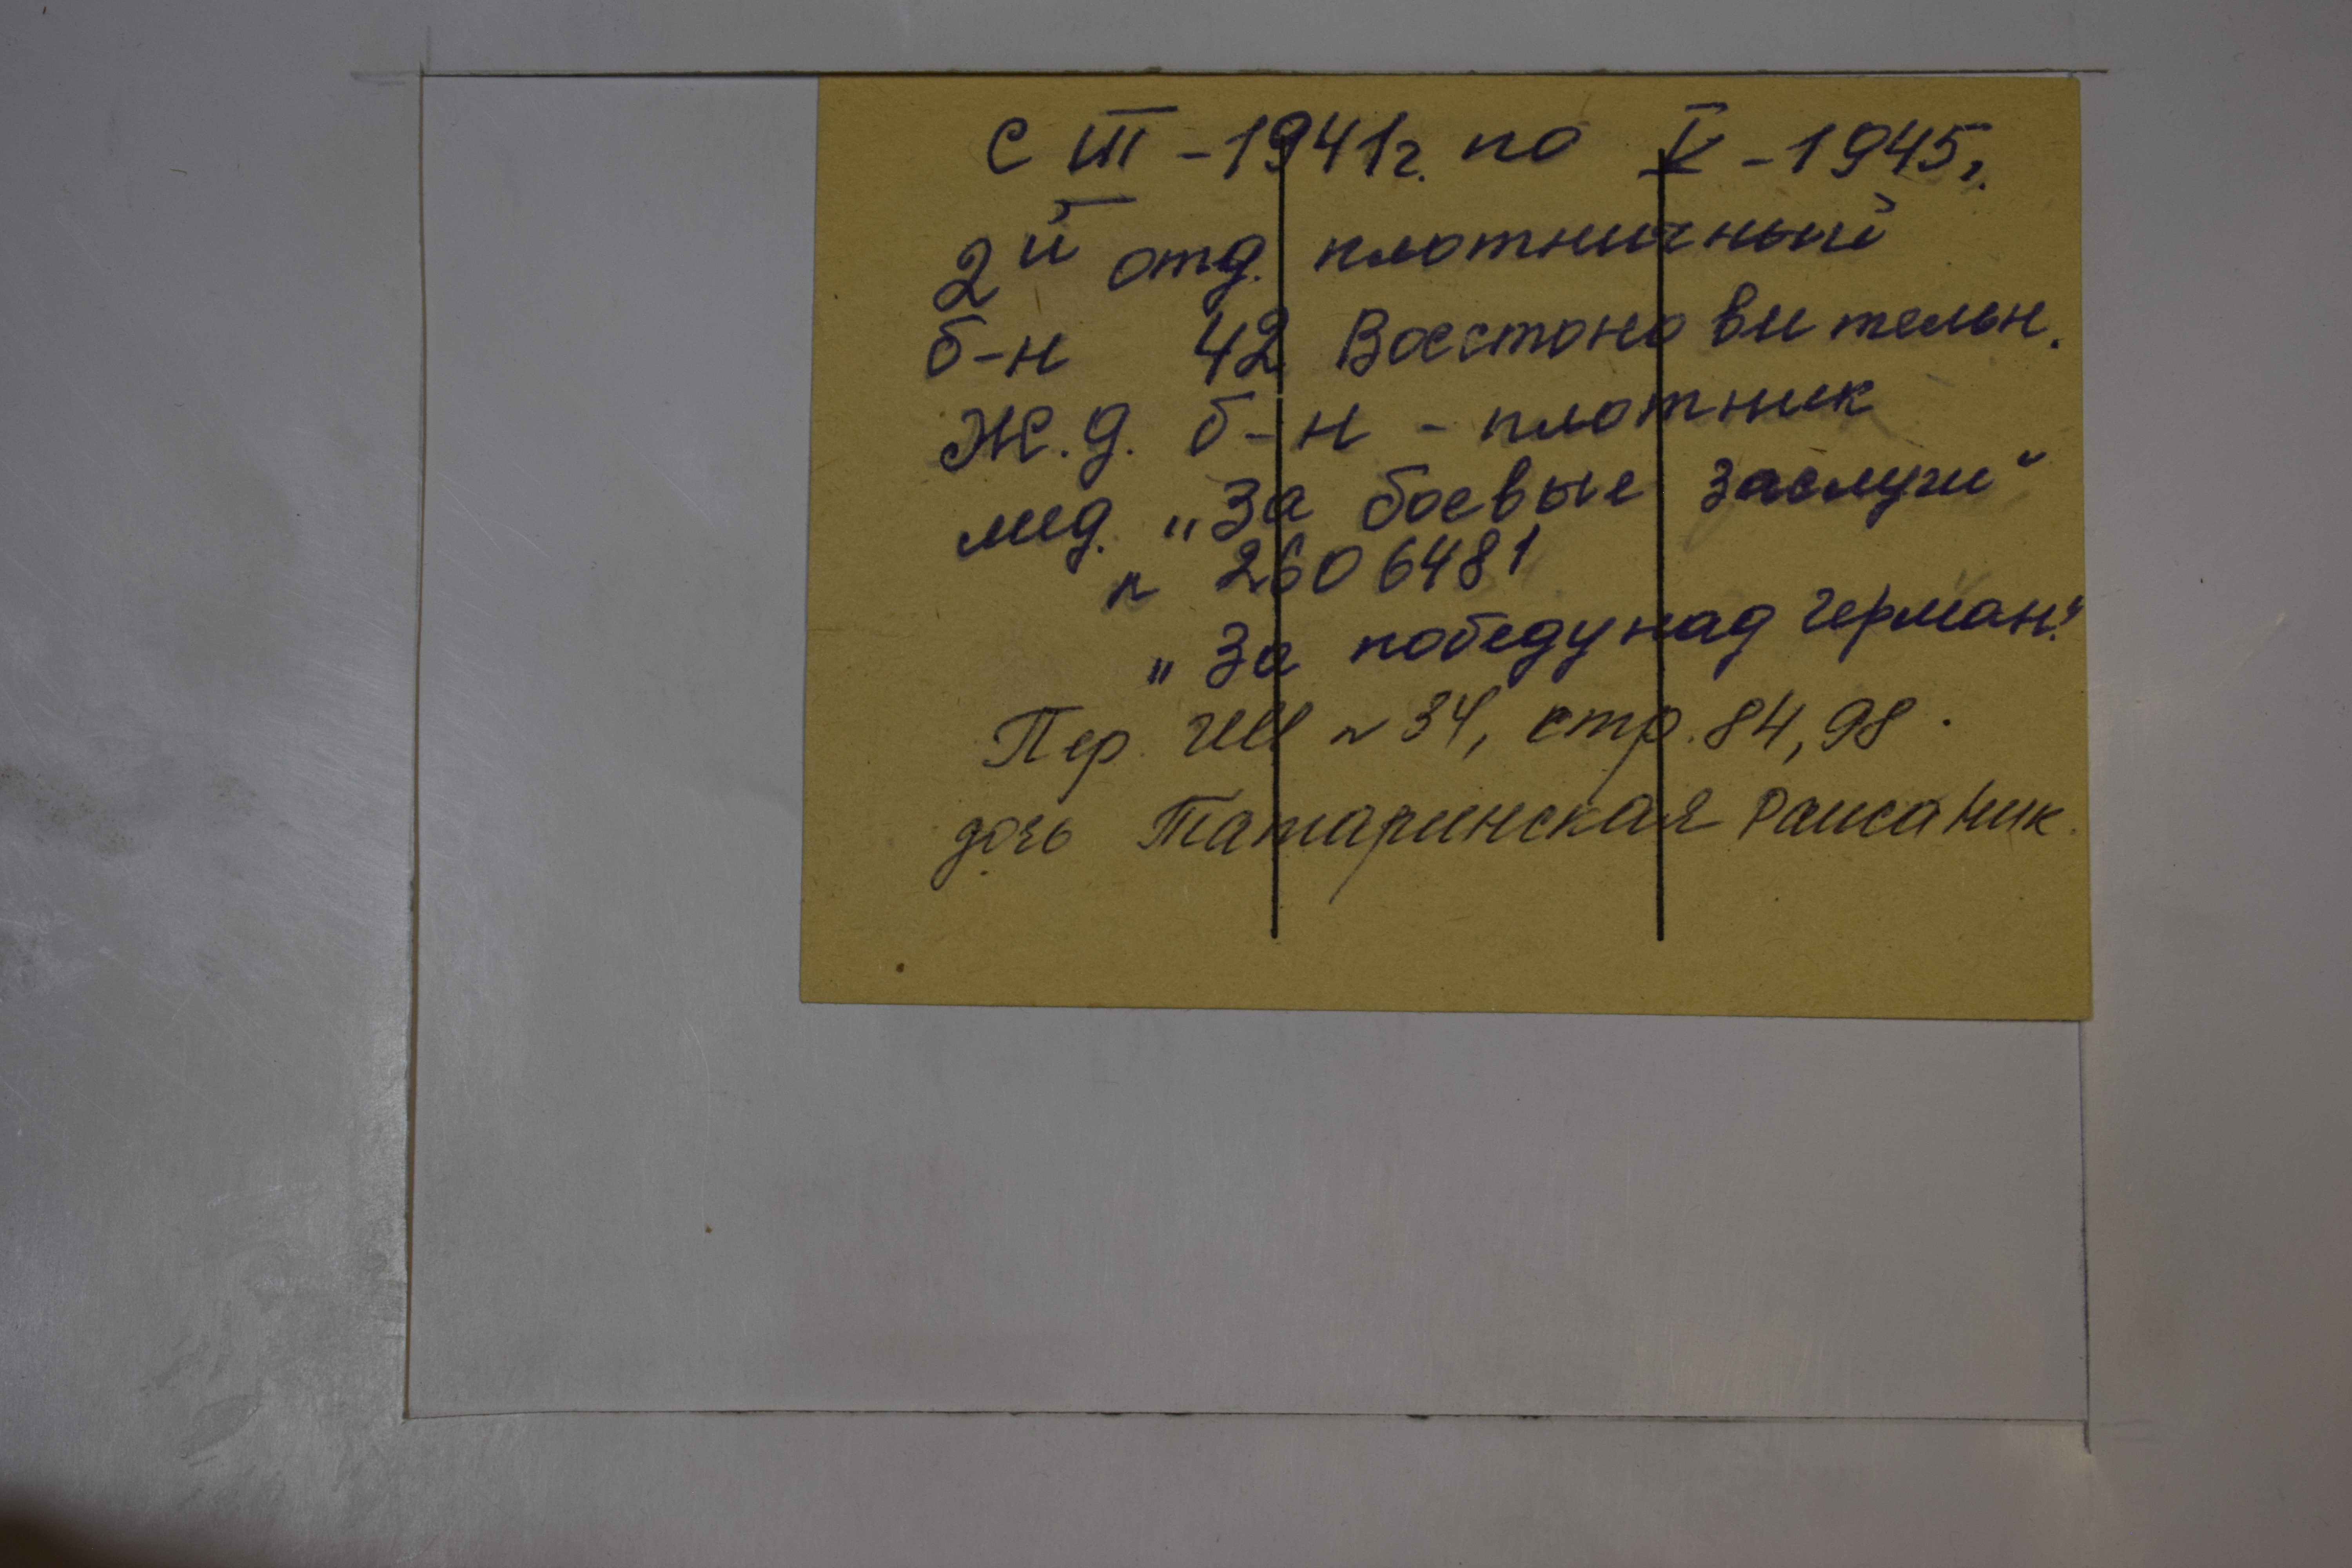 с III - 1941г. по V - 1945г.
2й отд. плотничный
б-н 42 Восстоновительн.
Ж.д. б-н - плотник
мед. „За боевые заслуги"
n 2606481
„За победу над Герман."
Пер. n 34, стр. 84, 98.
дочь Татаринская Раиса Ник.